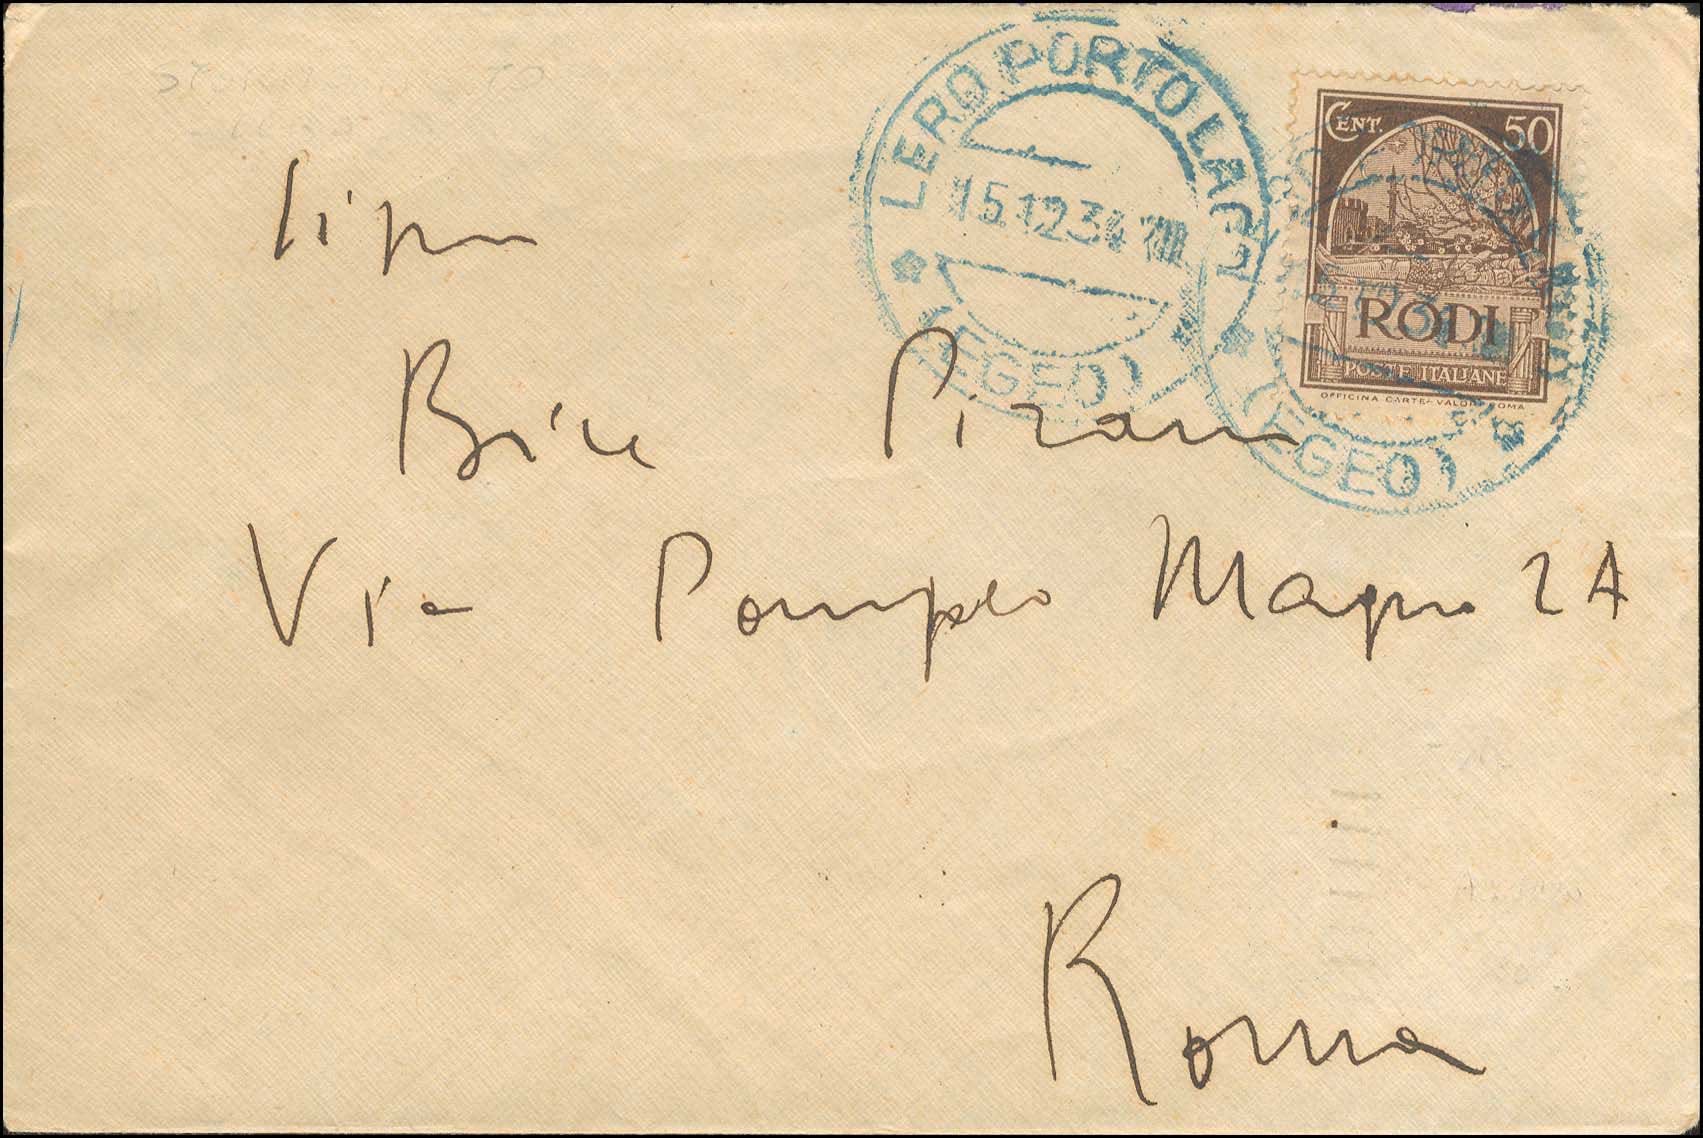 LERO PORTO LAGO
15.12.34 XIII
(EGEO)
CENT. 50
RODI
POSTE ITALIANE
OFFICINA CARTE-VALORI ROMA
(EGEO)
Bice Pirani
Via Pompeo Magno 2A
Roma